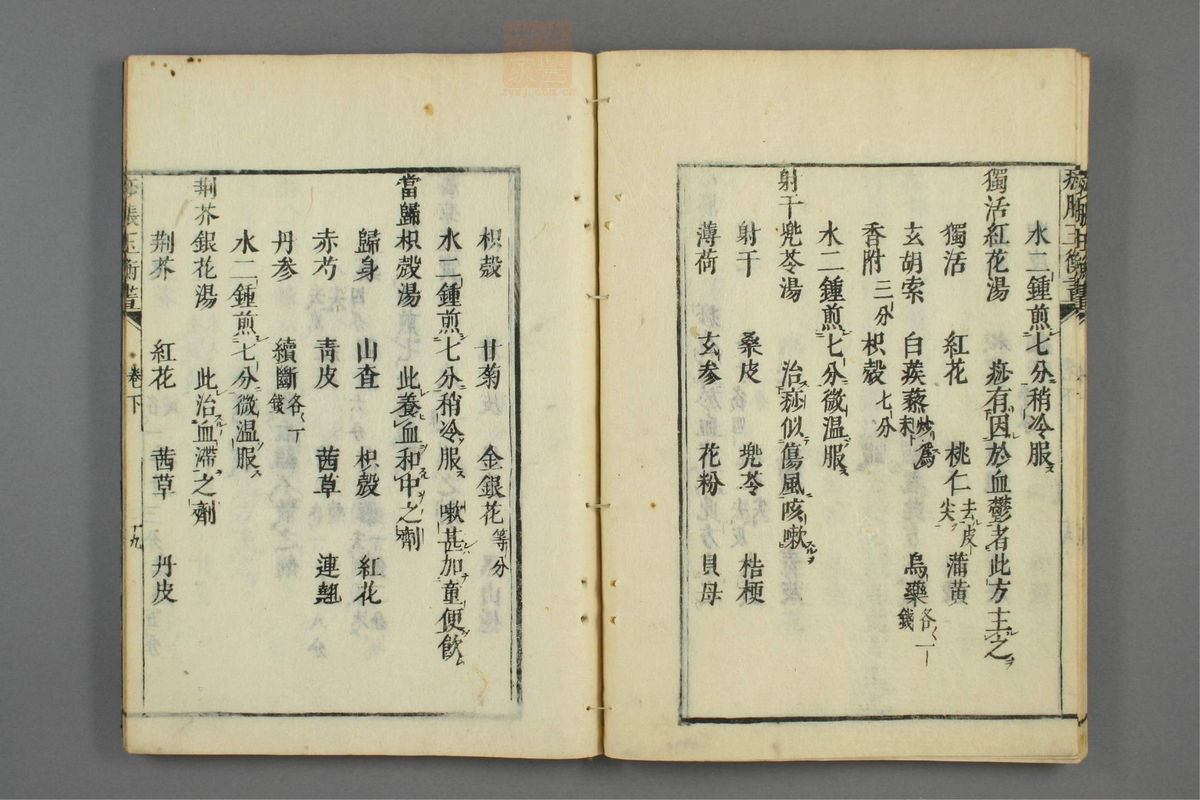 痧脹玉衡書
水二鍾煎七分稍冷服
獨活紅花湯 痧有因於血鬱者此方主之
獨活 紅花 桃仁去皮尖 蒲黃
玄胡索 白蒺藜炒爲末 烏藥各一錢
香附三分 枳殼七分
水二鍾煎七分微温服
射干兜苓湯 治痧似傷風咳嗽
射干 桑皮 兜苓 桔梗
薄荷 玄參 花粉 貝母
枳殼 甘菊 金銀花等分
水二鍾煎七分稍冷服 嗽甚加童便飲
當歸枳殼湯 此養血和中之劑
歸身 山查 枳殼 紅花
赤芍 青皮 茜草 連翹
丹參 續斷各一錢
水二鍾煎七分微温服
荆芥銀花湯 此治血滯之劑
荆芥 紅花 茜草 丹皮
痧脹玉衡書 卷下 十九